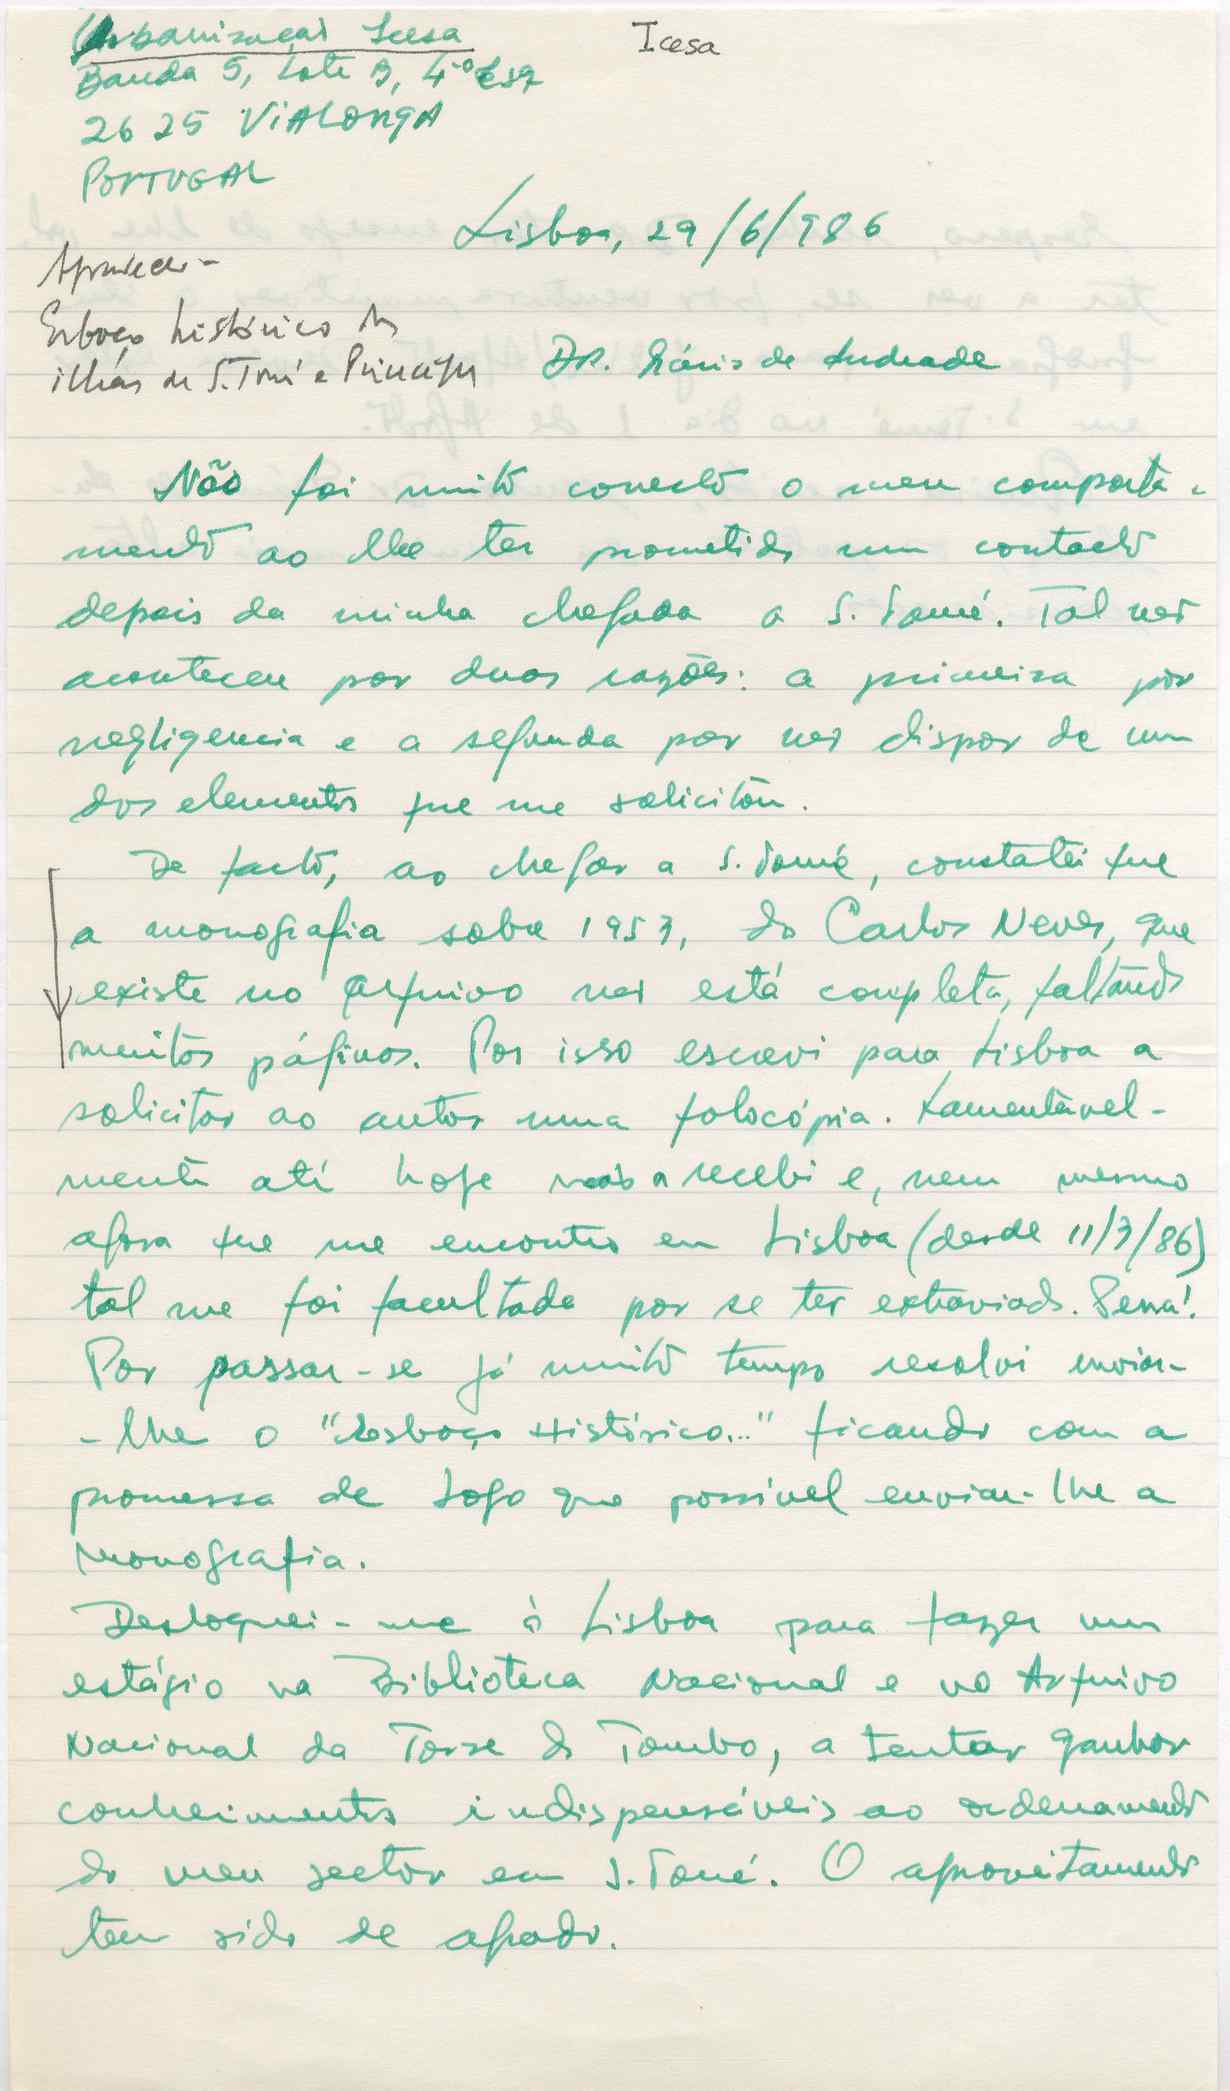 Urbanização Icesa
Icesa
Banda 5, Lote B, 4.º Esq
2625 VIALONGA
PORTUGAL
Lisboa, 29/6/986
Agradecer -
Esboço histórico das
ilhas de S. Tomé e Príncipe
DR. Mário de Andrade
Não foi muito correcto o meu comporta-
mento ao lhe ter prometido um contacto
depois da minha chegada a S. Tomé. Tal não
aconteceu por duas razões: a primeira por
negligencia e a segunda por não dispor de um
dos elementos que me solicitou.
De facto, ao chegar a S. Tomé, constatei que
a monografia sobre 1953, do Carlos Neves, que
existe no Arquivo não está completa, faltando
muitas páginas. Por isso escrevi para Lisboa a
solicitar ao autor uma fotocópia. Lamentàvel-
mente até hoje não a recebi e, nem mesmo
agora que me encontro em Lisboa (desde 11/3/86)
tal me foi facultada por se ter extraviado. Pena!
Por passar-se já muito tempo resolvi enviar-
-lhe o "Esboço Histórico..." ficando com a
promessa de logo que possível enviar-lhe a
monografia.
Desloquei-me à Lisboa para fazer um
estágio na Biblioteca Nacional e no Arquivo
Nacional da Torre do Tombo, a tentar ganhar
conhecimentos indispensáveis ao ordenamento
do meu sector em S. Tomé. O aproveitamento
tem sido de agrado.